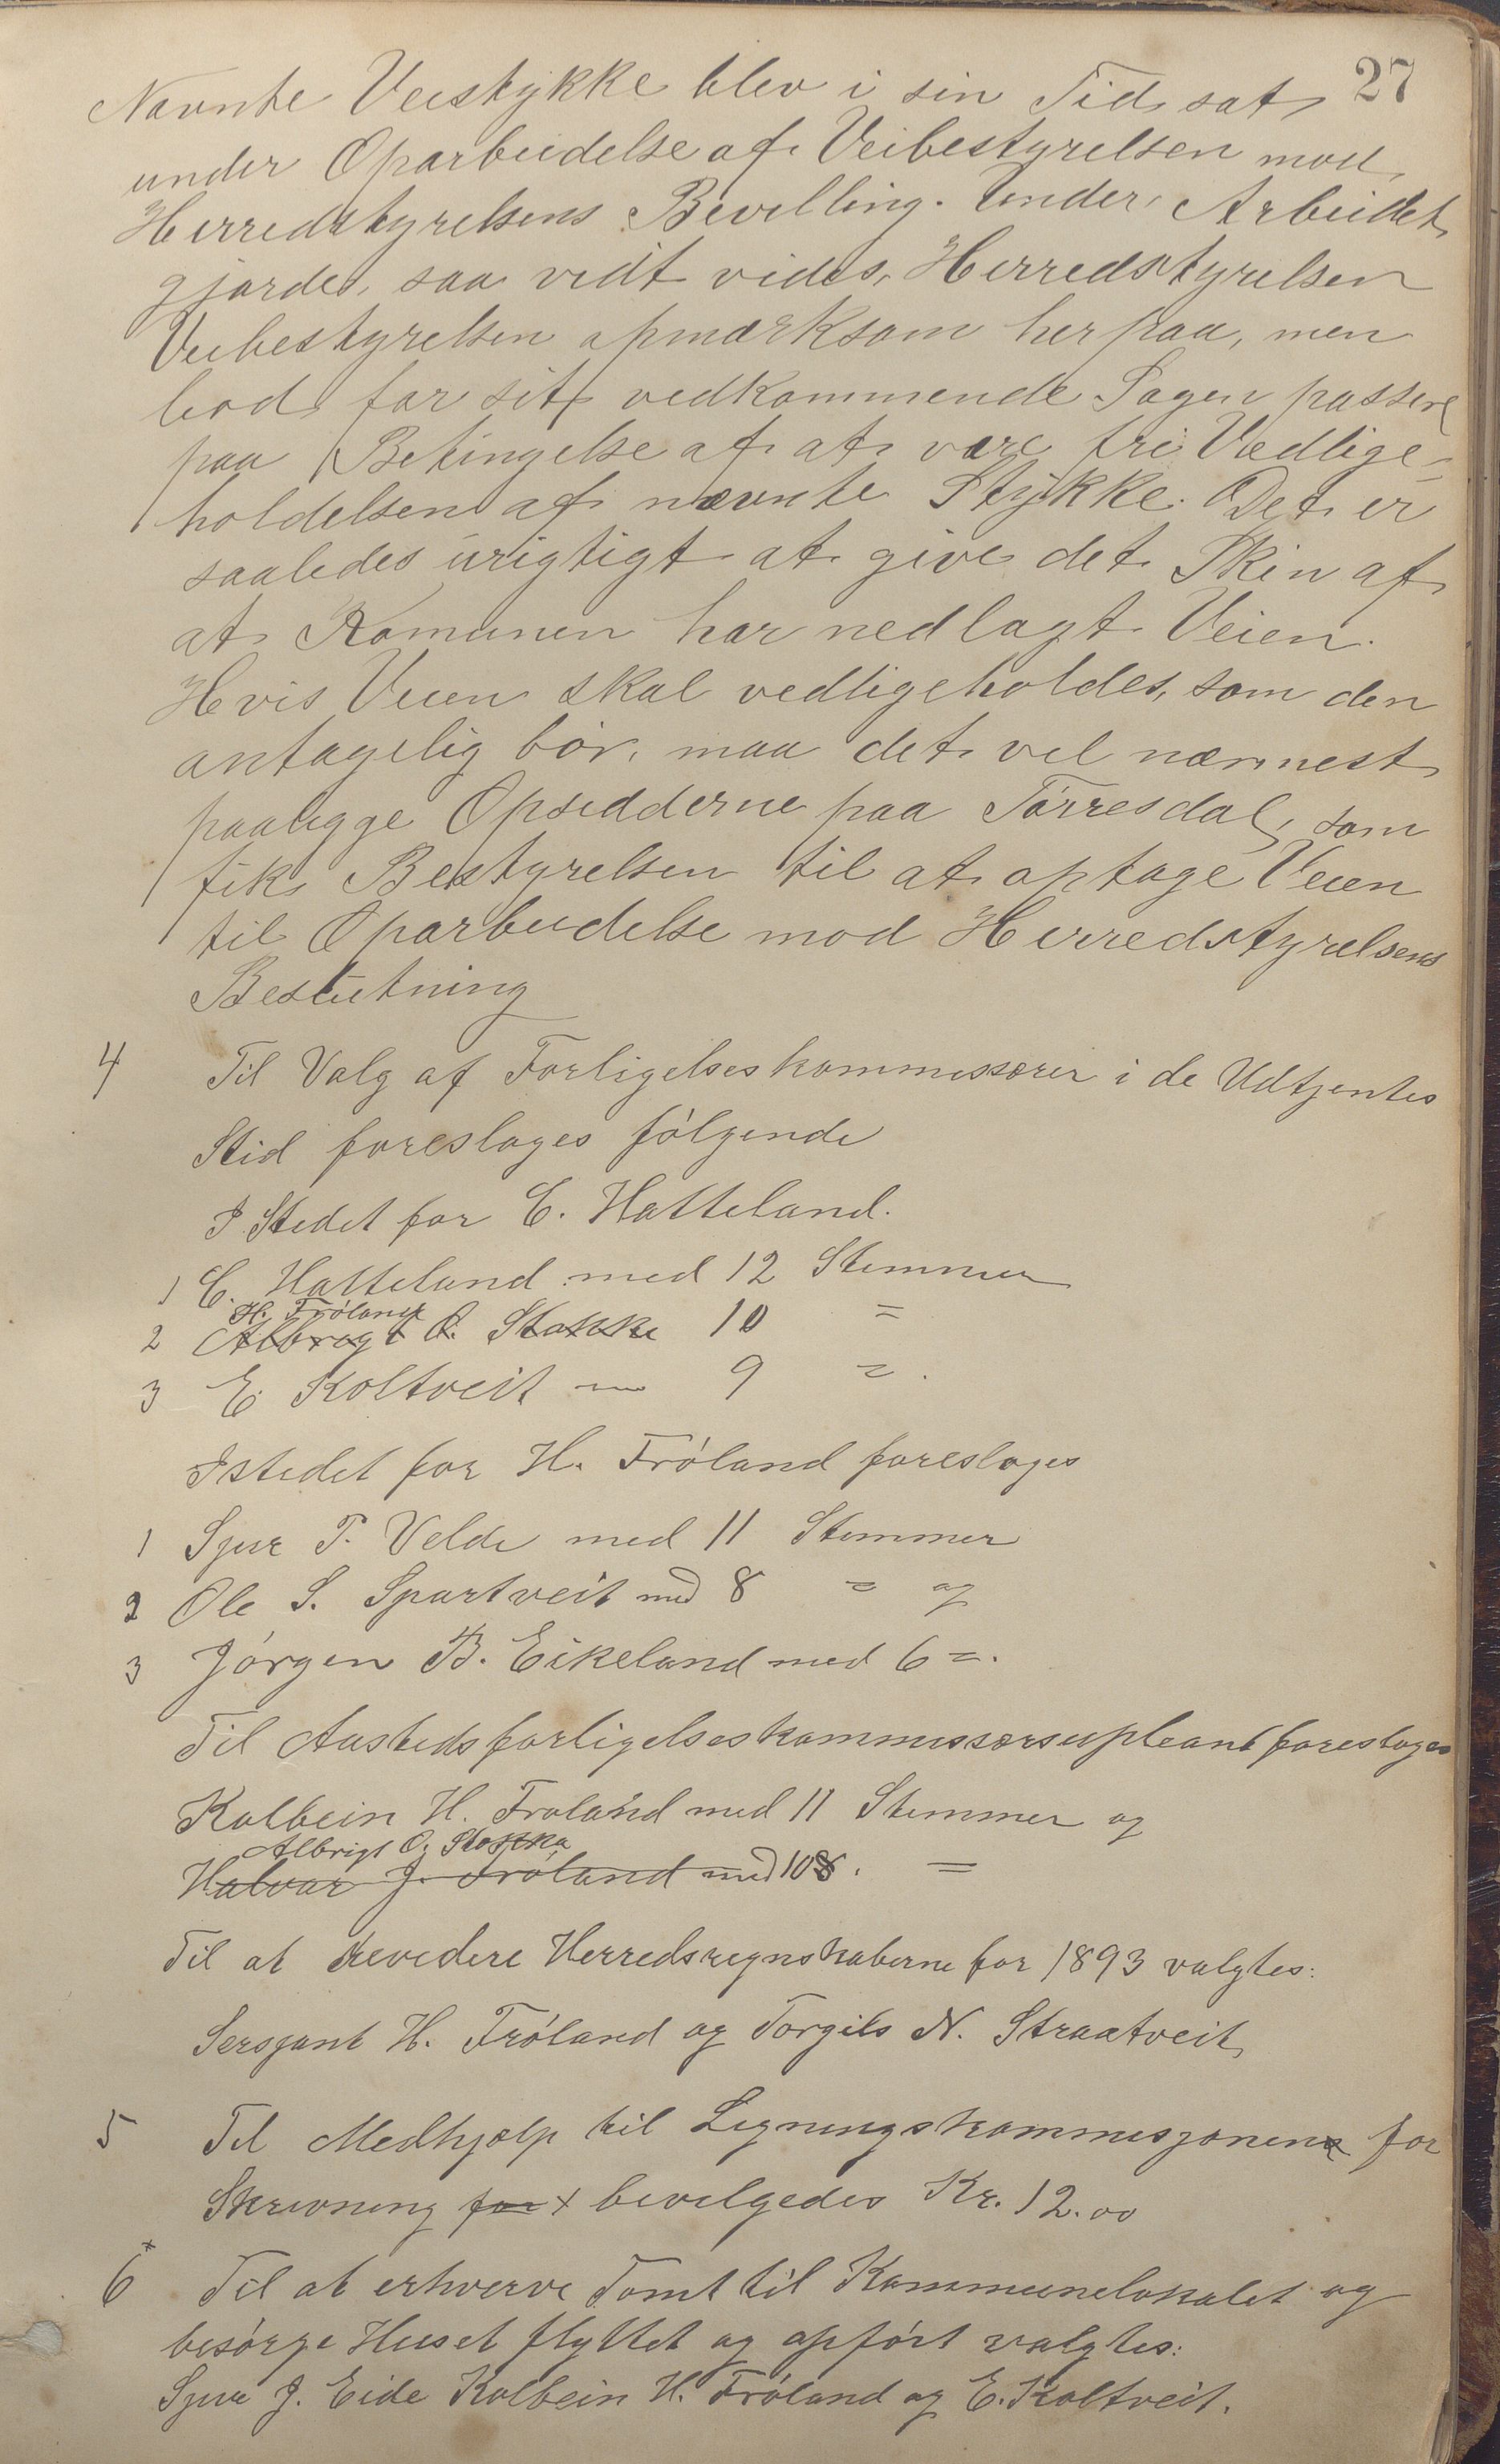 27
Nævnte Veistykke blev i sin Tid sat
under Oparbeidelse af Veibestyrelsen mod
Herredstyrelsens Bevilling. Under Arbeidet
gjorde, saa vidt vides, Herredstyrelsen
Veibestyrelsen opmærksom herpaa, men
lod for sit vedkommende Sagen passere
paa Betingelse af at være fri Vedlige-
holdelsen af nævnte Stykke. Det er
saaledes urigtigt at give det Skin af
at Komunen har nedlagt Veien.
Hvis Veien skal vedligeholdes, som den
antagelig bör, maa det vel nærmest
paaligge Opsidderne paa Törresdal, som
fik Bestyrelsen til at optage Veien
til Oparbeidelse mod Herredstyrelsens
Beslutning
4 Til Valg af Forligelseskommissærer i de Udtjentes
Sted foreslages fölgende
I Stedet for C. Hatteland.
1 C. Hatteland med 12 Stemmer
H. Fröland
2 Albregt O. Stakke 10 =
3 E. Koltveit — 9 =.
Istedet for H. Fröland foreslages
1 Sjur P. Velde med 11 Stemmer
2 Ole S. Spartveit med 8 = og
3 Jörgen B. Eikeland med 6 =.
Til Aastedsforligelseskommissærsupleant foreslages
Kolbein H. Fröland med 11 Stemmer og
Albrigt O. Stakke
Halvar J. Fröland med 108. =
Til at revedere Herredsregnskaberne for 1893 valgtes:
Sersjant H. Fröland og Torgils N. Straatveit
5 Til Medhjælp til Ligningskommisjonen for
Skrivning for + bevilgedes Kr. 12.00
6 Til at erhverve Tomt til Kommunelokalet og
besörge Huset flyttet og opfört valgtes:
Sjur J. Eide Kolbein H. Fröland og E. Koltveit.